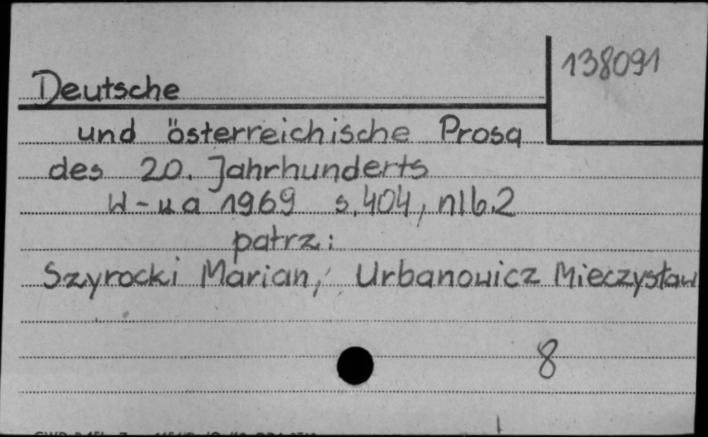 138091
Deutsche
und österreichische Prosa
des 20. Jahrhunderts
W-wa 1969 s. 404, nlb. 2
patrz:
Szyrocki Marian, Urbanowicz Mieczysław
8